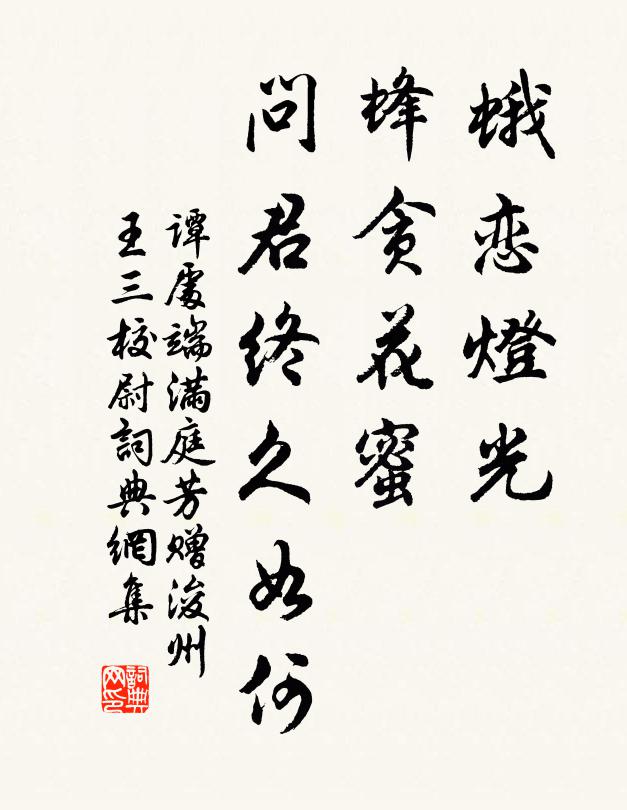 蛾恋燈光
蜂贪花蜜
問君终久如何
谭處端滿庭芳赠浚州
王三校尉詞典網集
詞典网印